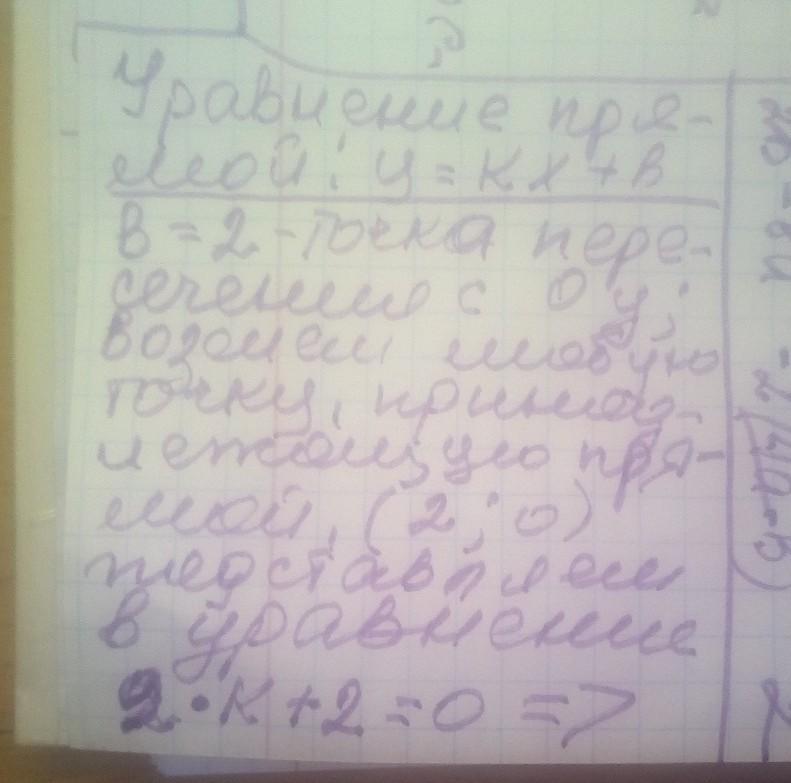 Уравнение пря-
мой: y = kx + в
в = 2 - точка пере-
сечения с Oy;
возьмем любую
точку, принад-
лежащую пря-
мой, (2; 0)
подставляем
в уравнение
2 • k + 2 = 0 =>